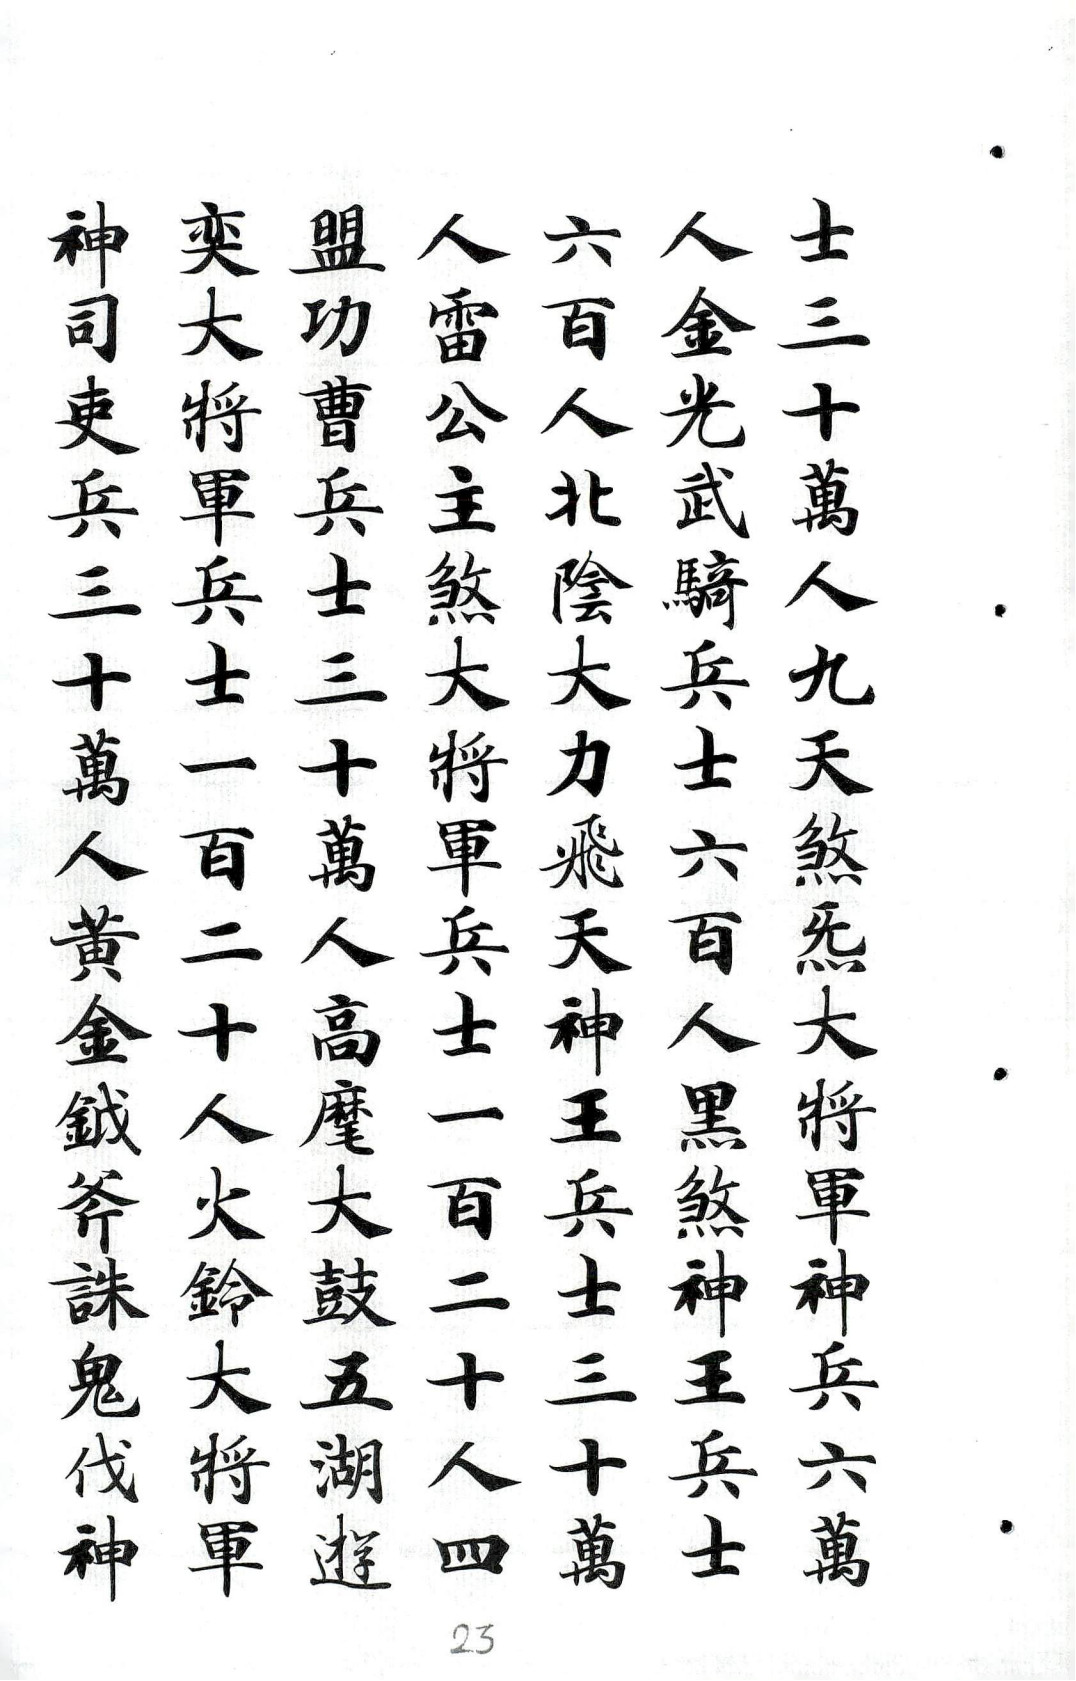 士三十萬人九天煞炁大將軍神兵六萬
人金光武騎兵士六百人黑煞神王兵士
六百人北陰大力飛天神王兵士三十萬
人雷公主煞大將軍兵士一百二十人四
盟功曹兵士三十萬人高麾大鼓五湖遊
奕大將軍兵士一百二十人火鈴大將軍
神司吏兵三十萬人黃金鉞斧誅鬼伐神
23